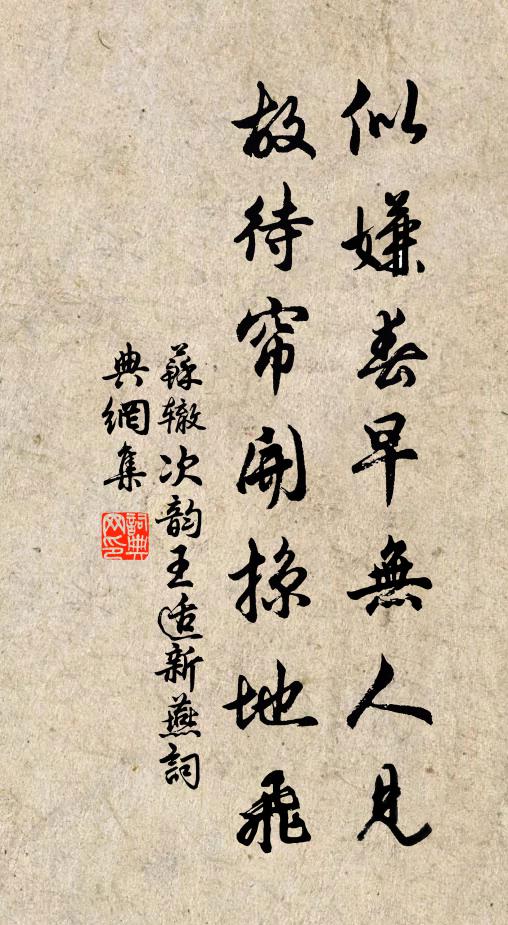 似嫌春早無人見
故待帘開掠地飛
蘇辙次韵王适新燕詞
典網集
詞典
网印